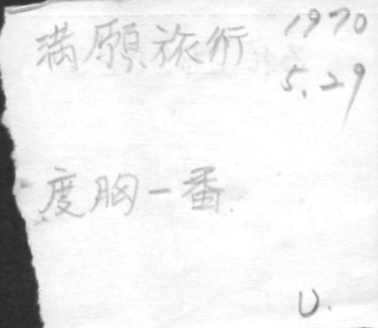 満願旅行 1970
5.29
度胸一番
U.